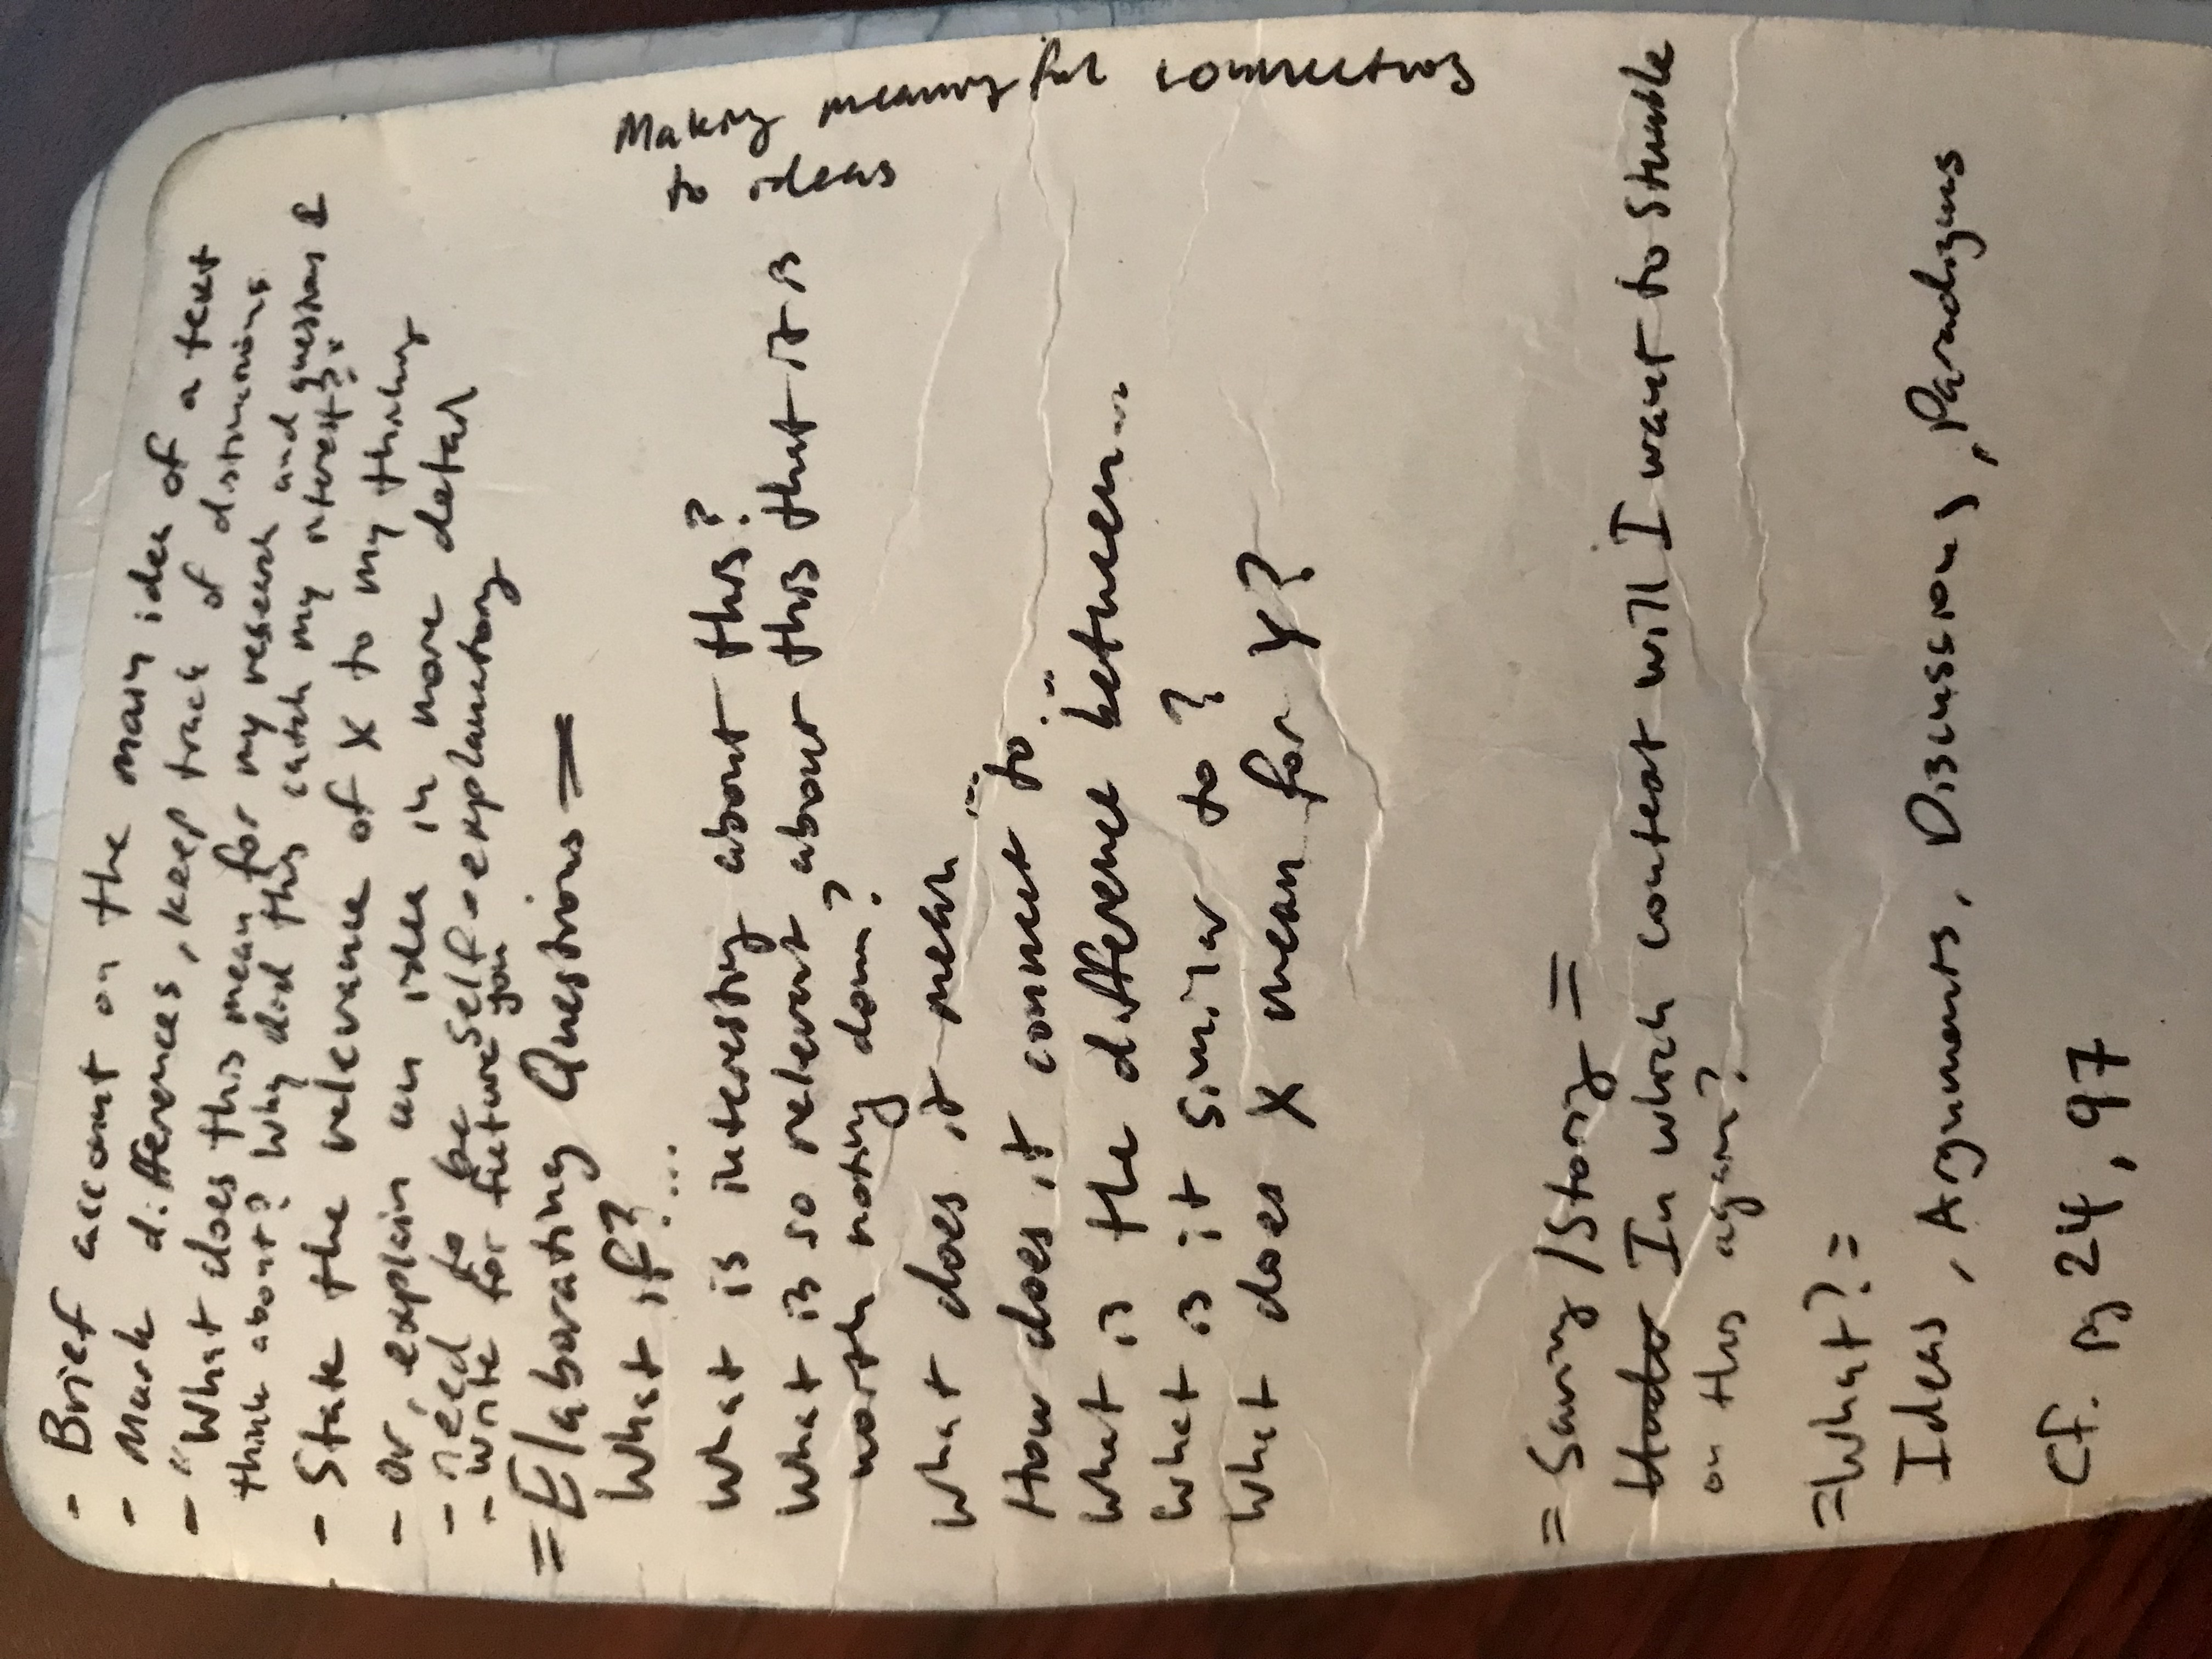 - Brief account on the main idea of a text
- Mark differences, keep track of distinctions
- "What does this mean for my research and questions I
think about? Why did this catch my interest?"
- State the relevance of X to my thinking
- Or, explain an idea in more detail
- need to be self-explanatory
- write for future you
= Elaborating Questions =
What if?...
What is interesting about this?
What is so relevant about this that it is
worth noting down?
What does it mean ...
How does it connect to...
What is the difference between...
What is it similar to?
What does X mean for Y?
Making meaningful connections
to ideas
= Saving / Storing =
In which context will I want to stumble
on this again?
= What? =
Ideas, Arguments, Discussions, Paradigms
Cf. pg 24, 97